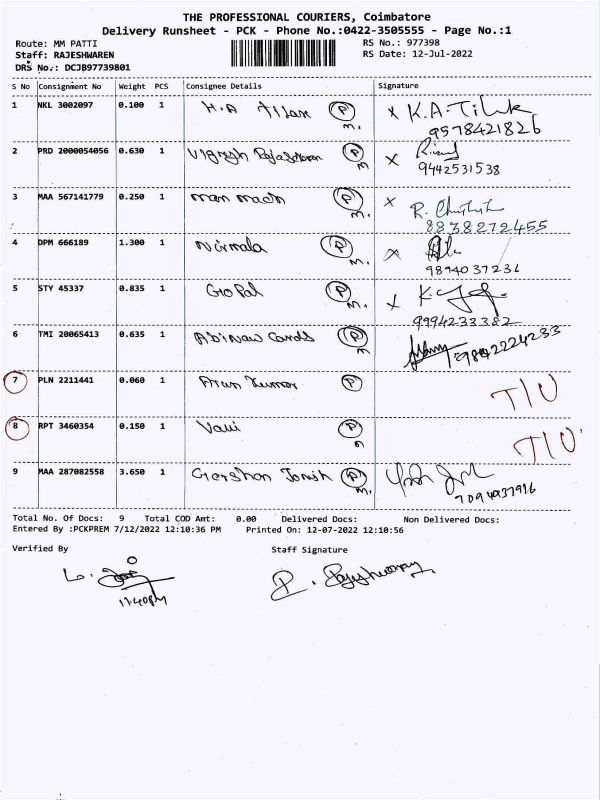 THE PROFESSIONAL COURIERS, Coimbatore
Delivery Runsheet - PCK - Phone No.:0422-3505555 - Page No.:1
Route: MM PATTI RS No.: 977398
Staff: RAJESHWAREN RS Date: 12-Jul-2022
DRS No.: DCJB97739801
S No Consignment No Weight PCS Consignee Details Signature
1 NKL 3002097 0.100 1 P m. x K.A-Tilak
9578421826
2 PRD 2000054056 0.630 1 P m x
9442531538
3 MAA 567141779 0.250 1 man mach P m. x R.
8838272455
4 DPM 666189 1.300 1 Nirmala P m. x
9894037231
5 STY 45337 0.835 1 Gopal P m. x K.
9994233382
6 TMI 20065413 0.635 1 Abinav Cards P m 9842224233
7 PLN 2211441 0.060 1 Arun Kumar P T/U
8 RPT 3460354 0.150 1 P T/U
9 MAA 287082558 3.650 1 P m.
7094937916
Total No. Of Docs: 9 Total COD Amt: 0.00 Delivered Docs: Non Delivered Docs:
Entered By :PCKPREM 7/12/2022 12:10:36 PM Printed On: 12-07-2022 12:10:56
Verified By Staff Signature
11:40PM